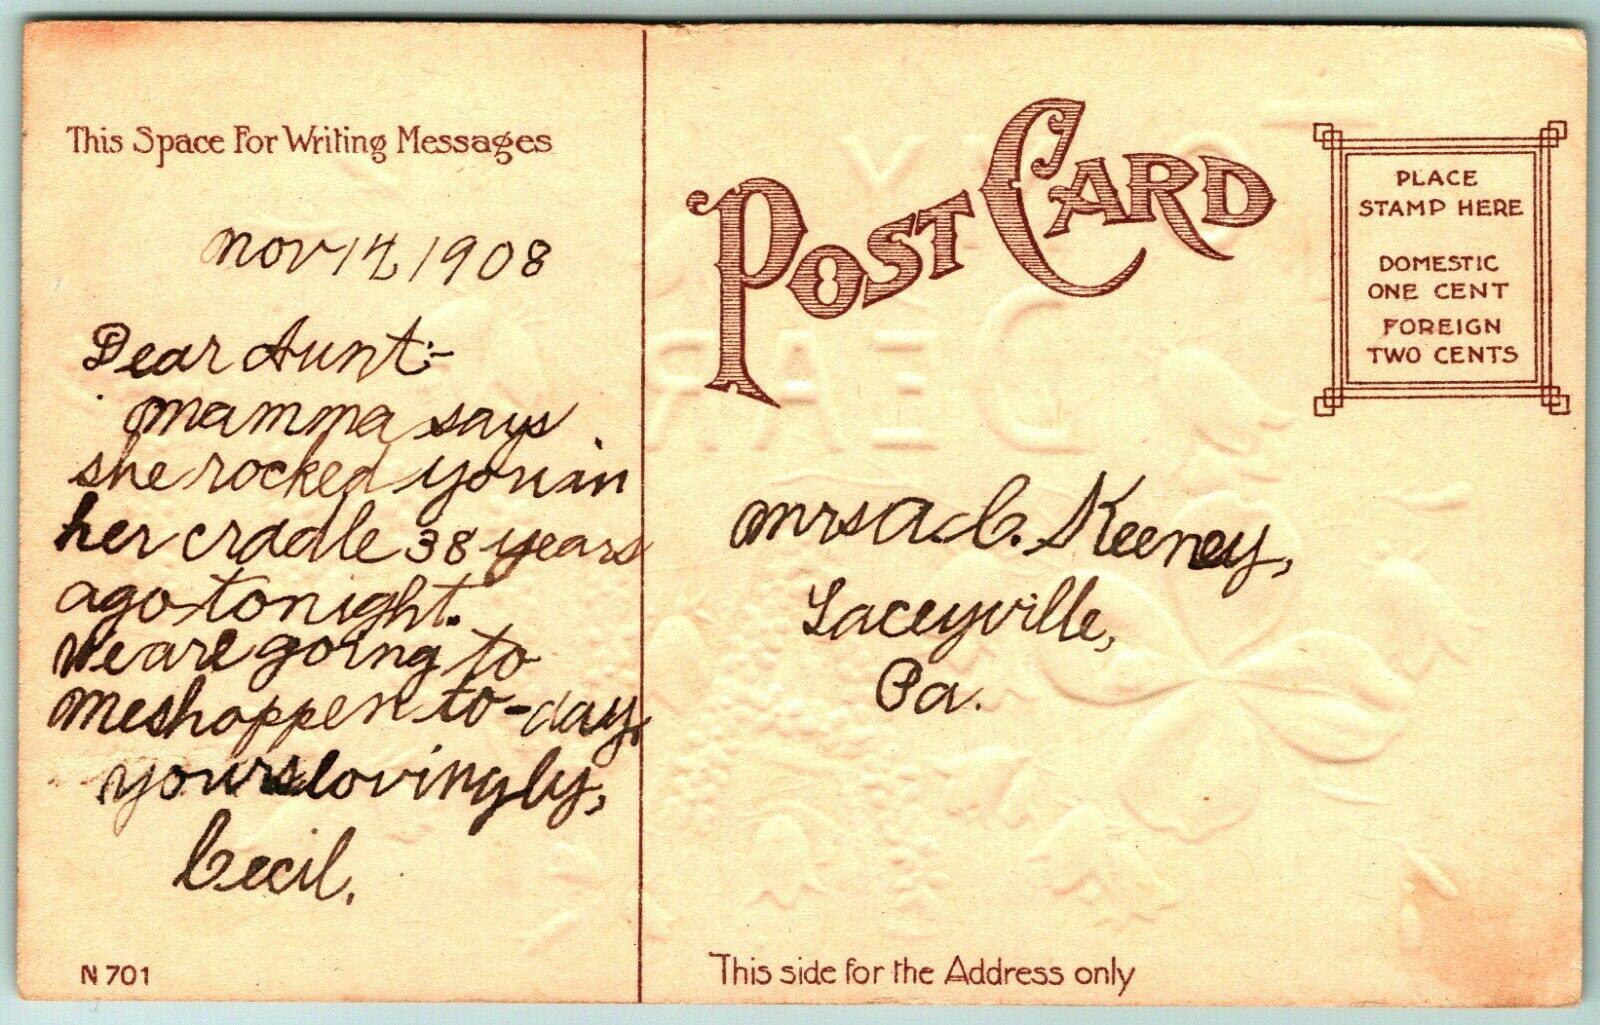 This Space For Writing Messages
Nov 14, 1908
Dear Aunt:-
Mamma says
she rocked you in
her cradle 38 years
ago tonight.
We are going to
Meshoppen to-day.
Yours lovingly,
Cecil.
N 701
POST CARD
PLACE
STAMP HERE
DOMESTIC
ONE CENT
FOREIGN
TWO CENTS
TO MY
DEAR
Mrs A. C. Keeney,
Laceyville,
Pa.
This side for the Address only